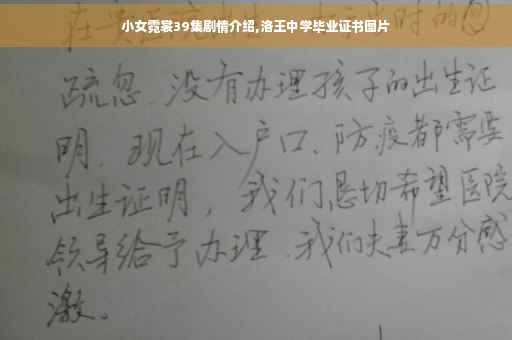 小女霓裳39集剧情介绍,洛王中学毕业证书图片
时的
疏忽、没有办理孩子的出生证
明、现在入户口、防疫都需要
出生证明，我们恳切希望医院
领导给予办理、我们夫妻万分感
激。